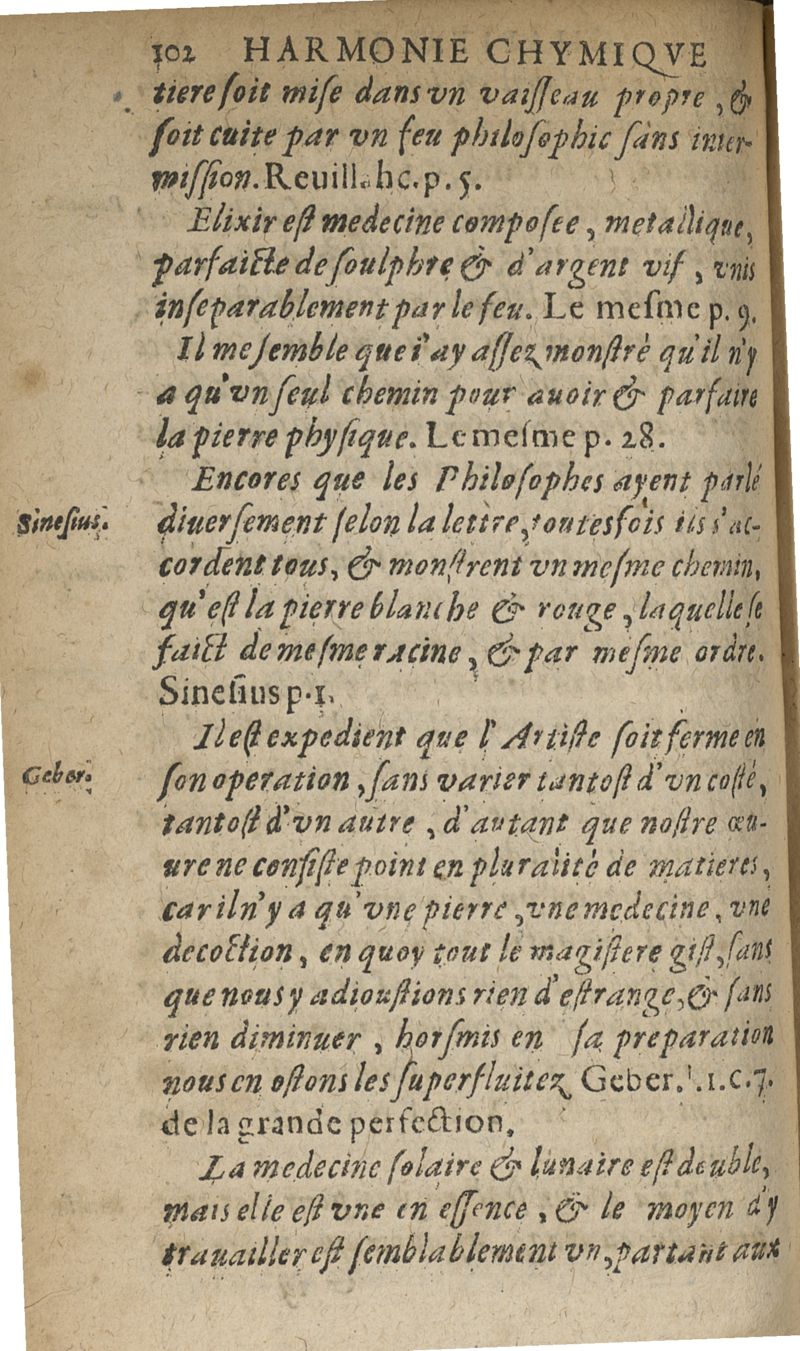 102 HARMONIE CHYMIQVE
tiere soit mise dans vn vaisseau propre, &
soit cuite par vn feu philosophic sans inter-
mission. Reuill. hc. p. 5.
Elixir est medecine composee, metallique,
parfaicte de soulphre & d'argent vif, vnis
inseparablement par le feu. Le mesme p. 9.
Il me semble que i'ay assez monstré qu'il n'y
a qu'vn seul chemin pour auoir & parfaire
la pierre physique. Le mesme p. 28.
Encores que les Philosophes ayent parlé
Sinesius.
diuersement selon la lettre, toutesfois ils s'ac-
cordent tous, & monstrent vn mesme chemin,
qu'est la pierre blanche & rouge, laquelle se
faict de mesme racine, & par mesme ordre.
Sinesius p. 1.
Il est expedient que l'Artiste soit ferme en
Geber.
son operation, sans varier tantost d'vn costé,
tantost d'vn autre, d'autant que nostre œu-
ure ne consiste point en pluralité de matieres,
car il n'y a qu'vne pierre, vne medecine, vne
decoction, en quoy tout le magistere gist, sans
que nous y adioustions rien d'estrange, & sans
rien diminuer, horsmis en sa preparation
nous en ostons les superfluitez Geber. l. 1. c. 7.
de la grande perfection.
La medecine solaire & lunaire est double,
mais elle est vne en essence, & le moyen d'y
trauailler est semblablement vn, partant aux